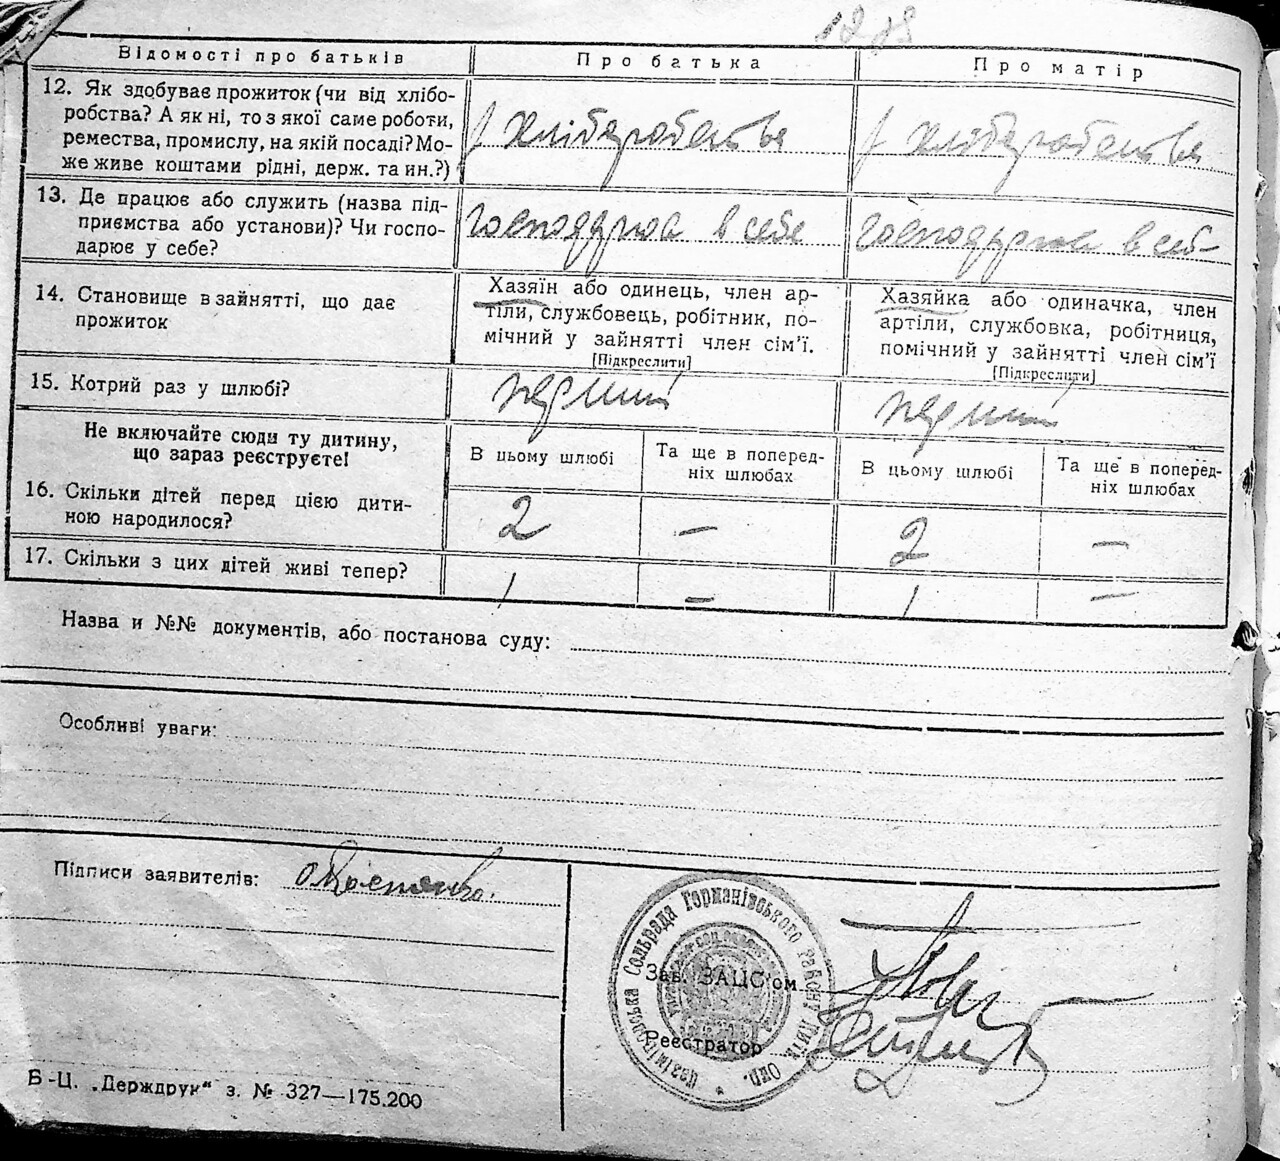 Відомості про батьків
Про батька
Про матір
12. Як здобуває прожиток (чи від хлібо-
робства? А як ні, то з якої саме роботи,
ремества, промислу, на якій посаді? Мо-
же живе коштами рідні, держ. та ин.?)
з хліборобства
з хліборобства
13. Де працює або служить (назва під-
приємства або установи)? Чи госпо-
дарює у себе?
господарює в себе
господарює в себе
14. Становище в зайнятті, що дає
прожиток
Хазяїн або одинець, член ар-
тіли, службовець, робітник, по-
мічний у зайнятті член сім'ї.
[Підкреслити]
Хазяйка або одиначка, член
артіли, службовка, робітниця,
помічний у зайнятті член сім'ї
[Підкреслити]
15. Котрий раз у шлюбі?
перший
перший
Не включайте сюди ту дитину,
що зараз реєструєте!
В цьому шлюбі
Та ще в поперед-
ніх шлюбах
В цьому шлюбі
Та ще в поперед-
ніх шлюбах
16. Скільки дітей перед цією дити-
ною народилося?
2
–
2
–
17. Скільки з цих дітей живі тепер?
1
–
1
–
Назва и №№ документів, або постанова суду:
Особливі уваги:
Підписи заявителів:
Сельрада Германівського району Київ. Окр.
Зав. ЗАЦС'ом
Реєстратор
Б-Ц. „Держдрук“ з. № 327—175.200